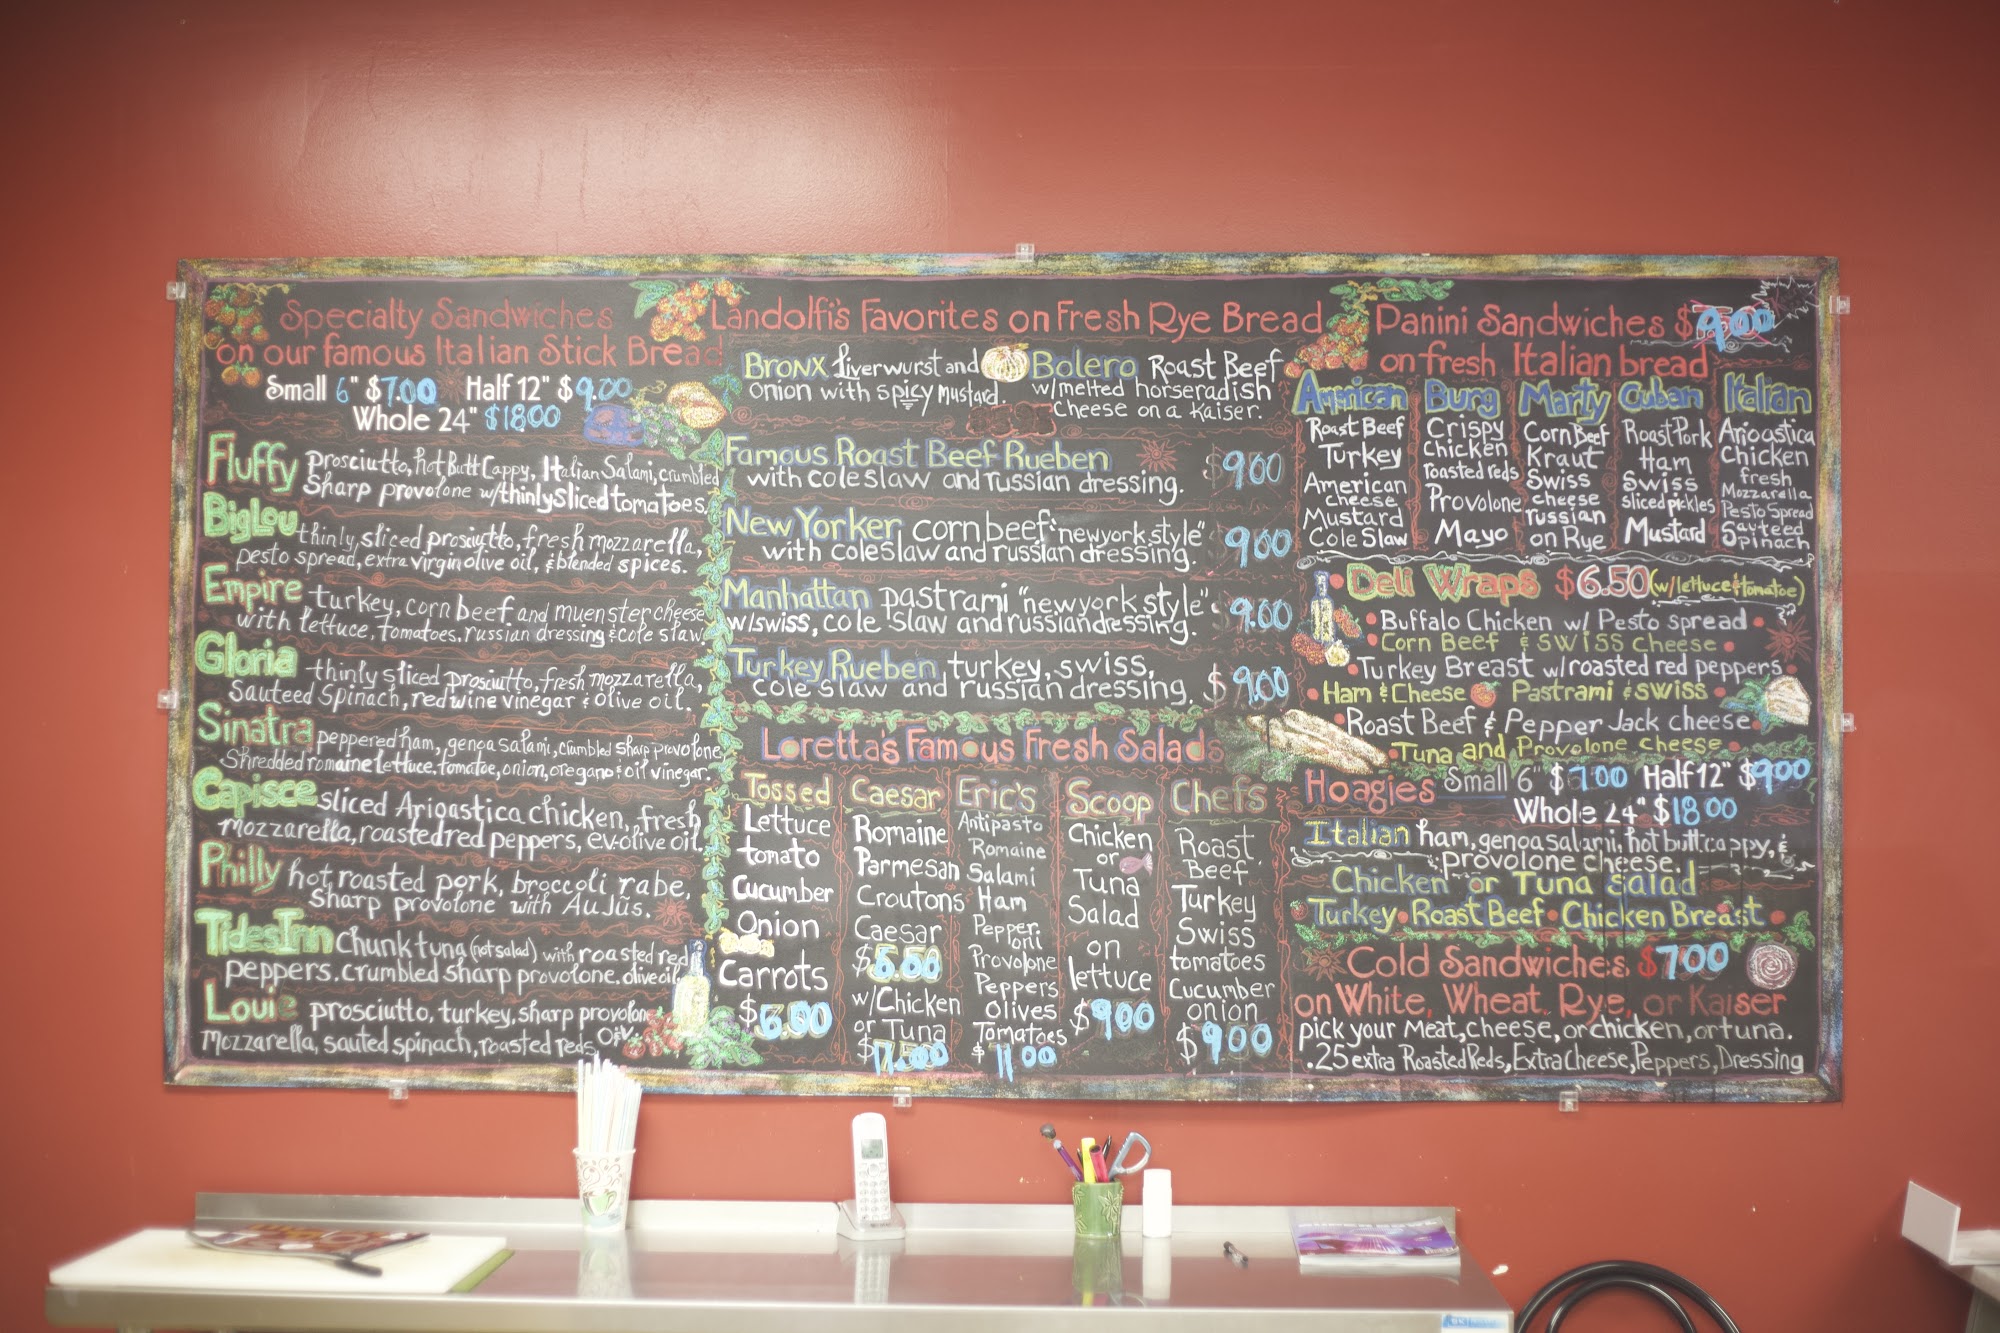 Specialty Sandwiches
on our famous Italian Stick Bread
Small 6" $7.00 Half 12" $9.00
Whole 24" $18.00
Fluffy Prosciutto, Hot Butt Cappy, Italian Salami, crumbled
Sharp provolone w/thinly sliced tomatoes.
Big Lou thinly sliced prosciutto, fresh mozzarella,
pesto spread, extra virgin olive oil, & blended spices.
Empire turkey, corn beef and muenster cheese
with lettuce, tomatoes, russian dressing & cole slaw
Gloria thinly sliced prosciutto, fresh mozzarella,
Sauteed Spinach, red wine vinegar & olive oil.
Sinatra peppered ham, genoa salami, crumbled sharp provolone,
Shredded romaine lettuce, tomatoe, onion, oregano & oil vinegar.
Capisce sliced Arioastica chicken, fresh
mozzarella, roasted red peppers, ev-olive oil,
Philly hot roasted pork, broccoli rabe,
Sharp provolone with AuJus.
Tides Inn Chunk tuna (not salad) with roasted red
peppers. crumbled sharp provolone. olive oil
Louie prosciutto, turkey, sharp provolone
Mozzarella, sauted spinach, roasted reds, oil
Landolfi's Favorites on Fresh Rye Bread
Bronx liverwurst and
onion with spicy mustard.
Bolero Roast Beef
w/melted horseradish
Cheese on a Kaiser.
Famous Roast Beef Rueben
with coleslaw and russian dressing. $9.00
New Yorker corn beef "newyork style"
with coleslaw and russian dressing. 9.00
Manhattan pastrami "newyork style"
w/swiss, cole slaw and russian dressing. 9.00
Turkey Rueben turkey, swiss,
cole slaw and russian dressing. $9.00
Loretta's Famous Fresh Salads
Tossed
Lettuce
tomato
Cucumber
Onion
Carrots
Caesar
Romaine
Parmesan
Croutons
Caesar
w/Chicken
or Tuna
Eric's
Antipasto
Romaine
Salami
Ham
Pepper
oni
Provolone
Peppers
Olives
Tomatoes
$11.00
Scoop
Chicken
or
Tuna
Salad
on
lettuce
$9.00
Chefs
Roast
Beef
Turkey
Swiss
tomatoes
cucumber
onion
$9.00
Panini Sandwiches $9.00
on fresh Italian bread
American
Roast Beef
Turkey
American
cheese
Mustard
Cole Slaw
Burg
Crispy
Chicken
roasted reds
Provolone
Mayo
Marty
Corn Beef
Kraut
Swiss
cheese
russian
on Rye
Cuban
Roast Pork
Ham
Swiss
sliced pickles
Mustard
Italian
Arioastica
Chicken
fresh
Mozzarella
Pesto Spread
Sayteed
Spinach
Deli Wraps $6.50 (w/lettuce & tomatoe)
Buffalo Chicken w/ Pesto spread
Corn Beef & Swiss Cheese
Turkey Breast w/roasted red peppers
Ham & Cheese Pastrami & swiss
Roast Beef & Pepper Jack cheese
Tuna and Provolone cheese
Hoagies Small 6" $7.00 Half 12" $9.00
Whole 24" $18.00
Italian ham, genoa salami, hot butt cappy, &
provolone cheese.
Chicken or Tuna Salad
Turkey • Roast Beef • Chicken Breast
Cold Sandwiches $7.00
on White, Wheat, Rye, or Kaiser
pick your meat, cheese, or chicken, or tuna.
.25 extra Roasted Reds, Extra Cheese, Peppers, Dressing